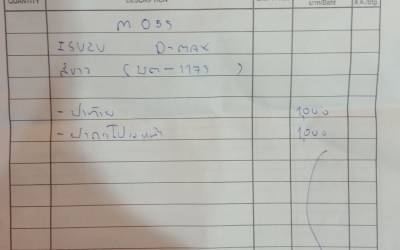 QUANTITY DESCRIPTION บาท/Baht ส.ต./Stg.
M 055
ISUZU D-MAX
สีขาว (บต-1173)
- ฝาท้าย 1,000
- ฝากระโปรงหน้า 1,000